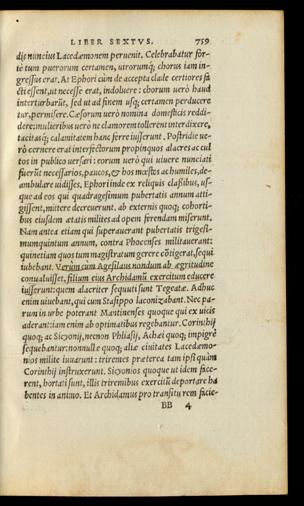 LIBER SEXTVS. 759
dis nuncius Lacedæmonem peruenit. Celebrabatur for-
te tum puerorum certamen, utrorumq; chorus iam in-
gressus erat. At Ephori cùm de accepta clade certiores fa
cti essent, ut necesse erat, indoluere: chorum uerò haud
interturbarũt, sed ut ad finem usq; certamen perducere
tur, permisere. Cæsorum uerò nomina domesticis reddi-
dere: mulieribus uerò ne clamorem tollerent interdixere,
tacitasq; calamitatem hanc ferre iusserunt. Postridie ue-
rò cernere erat interfectorum propinquos alacres ac cul
tos in publico uersari: eorum uerò qui uiuere nunciati
fuerũt necessarios, paucos, & hos mœstos ac humiles, de-
ambulare uidisses. Ephori inde ex reliquis classibus, us-
que ad eos qui quadragesimum pubertatis annum atti-
gissent, mittere decreuerunt. ab externis quoq; cohorti-
bus eiusdem ætatis milites ad opem ferendam miserunt.
Nam antea etiam qui superauerant pubertatis trigesi-
mumquintum annum, contra Phocenses militauerant:
quinetiam quos tum magistratum gerere cõtigerat, sequi
iubebant. Verùm cùm Agesilaus nondum ab ægritudine
conualuisset, filium eius Archidamũ exercitum educere
iusserunt: quem alacriter sequuti sunt Tegeatæ. Adhuc
enim uiuebant, qui cum Stasippo laconizabant. Nec pa-
rum in urbe poterant Mantinenses quoque qui ex uicis
aderant: iam enim ab optimatibus regebantur. Corinthij
quoq; ac Sicyonij, necnon Phliasij, Achæi quoq; impigrè
sequebantur: nonnullæ quoq; aliæ ciuitates Lacedæmo-
nios milite iuuarunt: triremes præterea tam ipsi quàm
Corinthij instruxerunt. Sicyonios quoque ut idem face-
rent, hortati sunt, illis triremibus exercitũ deportare ha
bentes in animo. Et Archidamus pro transitu rem facie-
BB 4